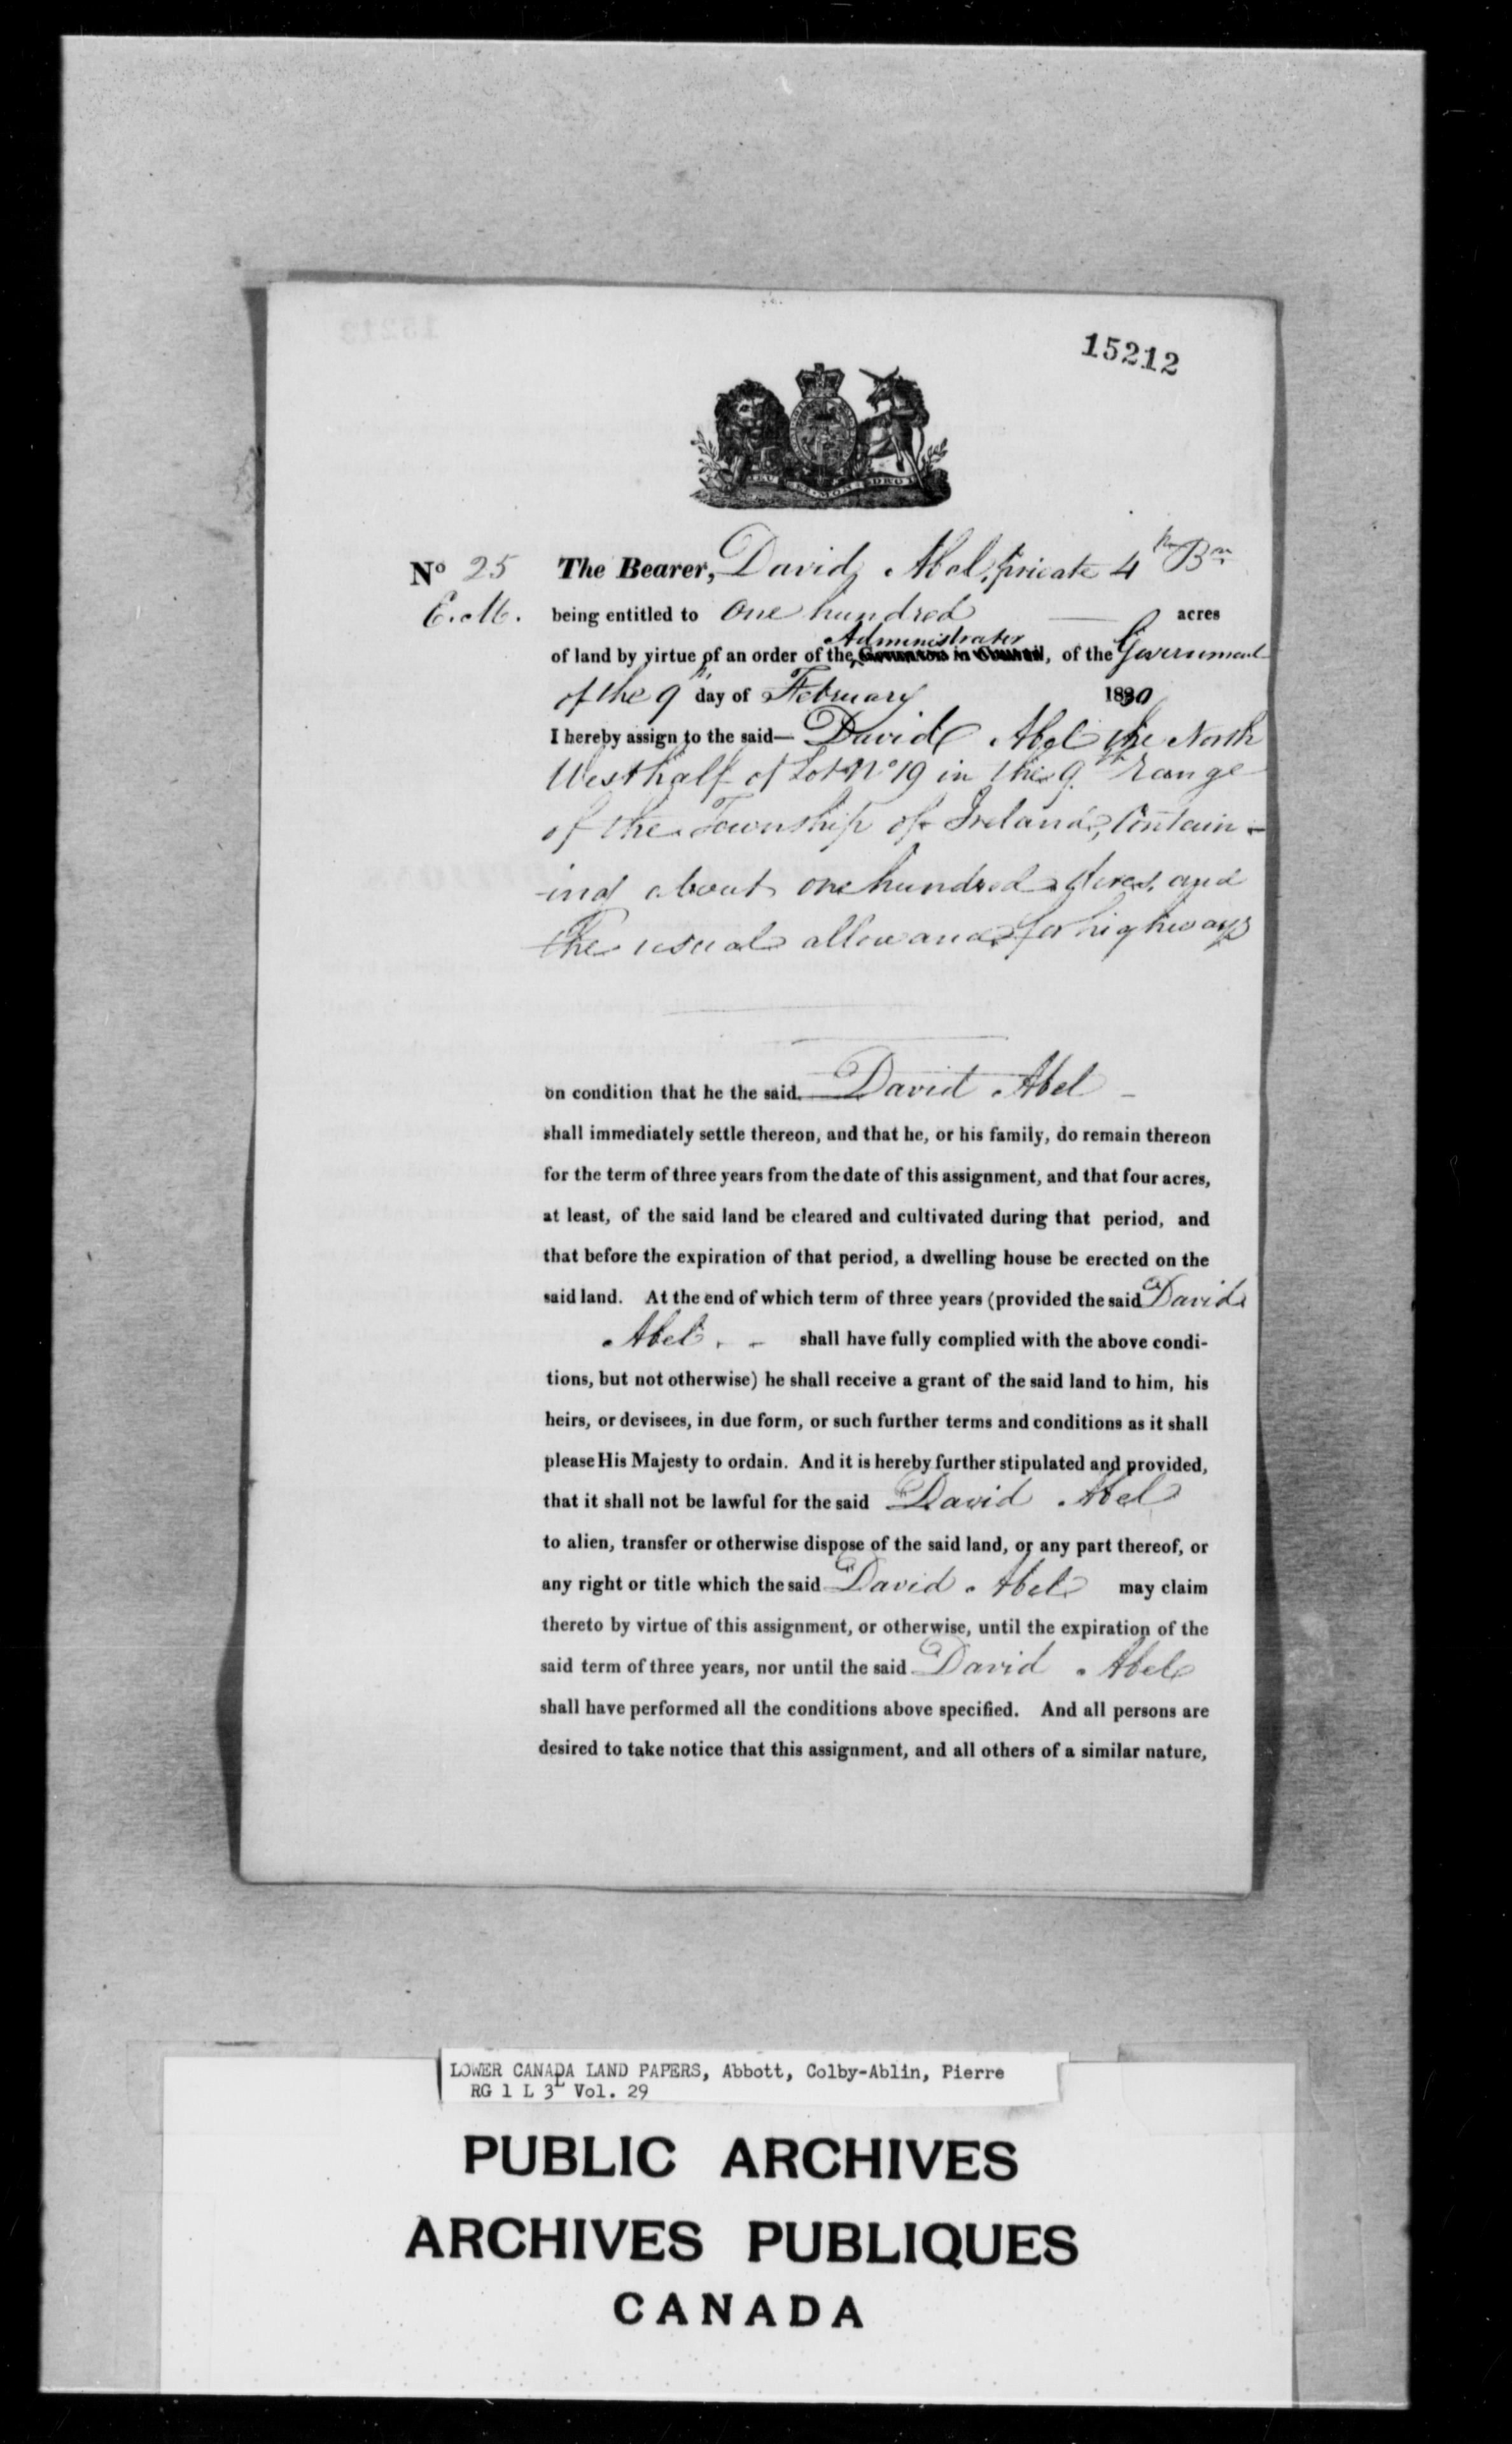 15212
DIEU ET MON DROIT
No 25 The Bearer, David Abel, private 4th Bn
E.M. being entitled to One hundred acres
Administrator
of land by virtue of an order of the Governor in Council, of the Government
of the 9th day of February 1830
I hereby assign to the said— David Abel the North
West half of Lot No 19 in the 9th range
of the Township of Ireland, Contain-
-ing about one hundred Acres, and
the usual allowance for highways
on condition that he the said David Abel
shall immediately settle thereon, and that he, or his family, do remain thereon
for the term of three years from the date of this assignment, and that four acres,
at least, of the said land be cleared and cultivated during that period, and
that before the expiration of that period, a dwelling house be erected on the
said land. At the end of which term of three years (provided the said David
Abel. - shall have fully complied with the above condi-
tions, but not otherwise) he shall receive a grant of the said land to him, his
heirs, or devisees, in due form, or such further terms and conditions as it shall
please His Majesty to ordain. And it is hereby further stipulated and provided,
that it shall not be lawful for the said David Abel
to alien, transfer or otherwise dispose of the said land, or any part thereof, or
any right or title which the said David Abel may claim
thereto by virtue of this assignment, or otherwise, until the expiration of the
said term of three years, nor until the said David Abel
shall have performed all the conditions above specified. And all persons are
desired to take notice that this assignment, and all others of a similar nature,
LOWER CANADA LAND PAPERS, Abbott, Colby-Ablin, Pierre
RG 1 L 3L Vol. 29
PUBLIC ARCHIVES
ARCHIVES PUBLIQUES
CANADA